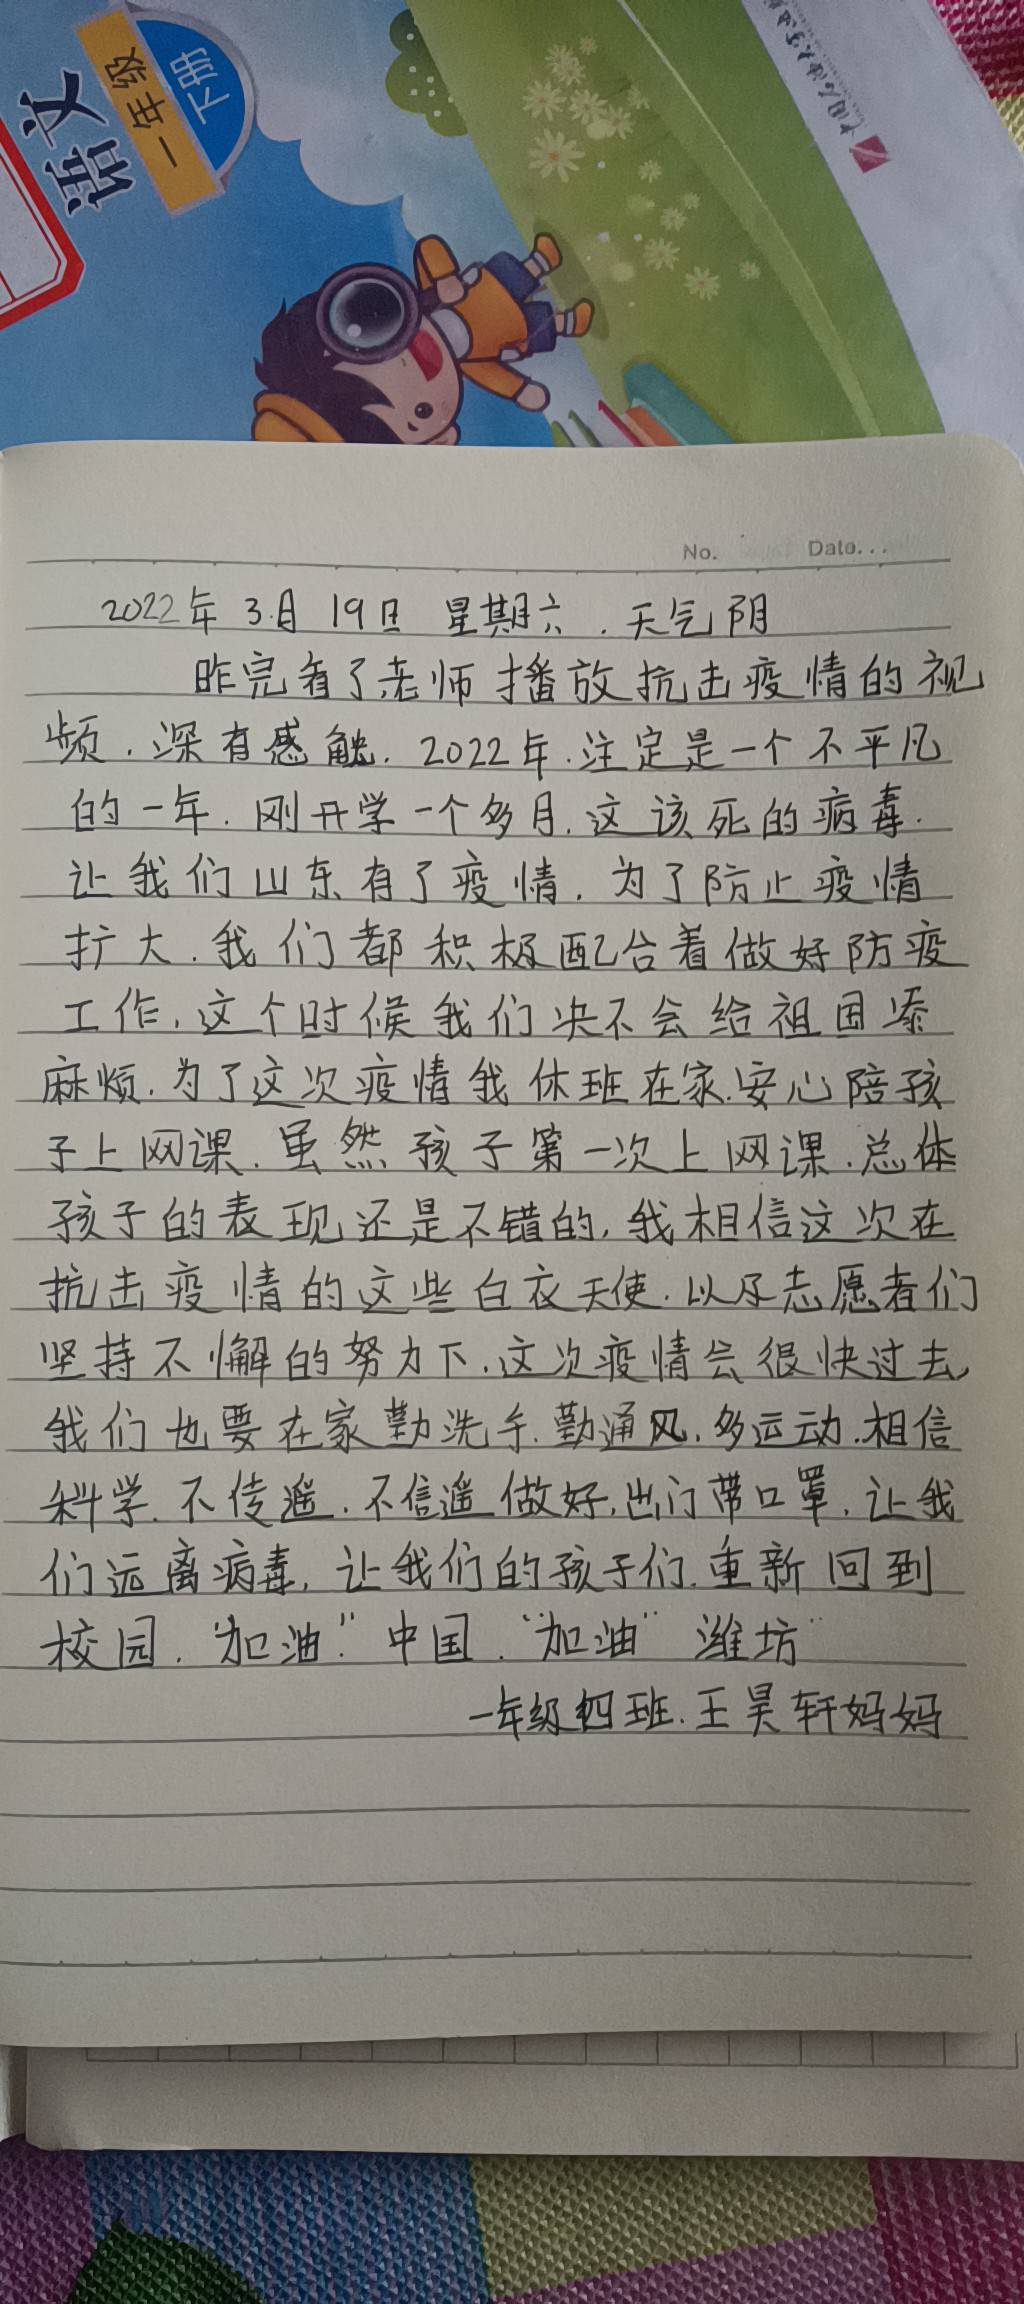 语文
一年级
下册
No. Date...
2022年 3月 19日 星期六.天气阴
昨完看了老师播放抗击疫情的视
频.深有感触.2022年.注定是一个不平凡
的一年.刚开学一个多月.这该死的病毒.
让我们山东有了疫情.为了防止疫情
扩大.我们都积极配合着做好防疫
工作,这个时候我们决不会给祖国添
麻烦.为了这次疫情我休班在家.安心陪孩
子上网课.虽然孩子第一次上网课.总体
孩子的表现还是不错的,我相信这次在
抗击疫情的这些白衣天使.以及志愿者们
坚持不懈的努力下.这次疫情会很快过去,
我们也要在家勤洗手.勤通风.多运动.相信
科学.不传遥.不信遥做好,出门带口罩.让我
们远离病毒,让我们的孩子们.重新回到
校园.“加油”.中国.“加油”潍坊
一年级四班.王昊轩妈妈